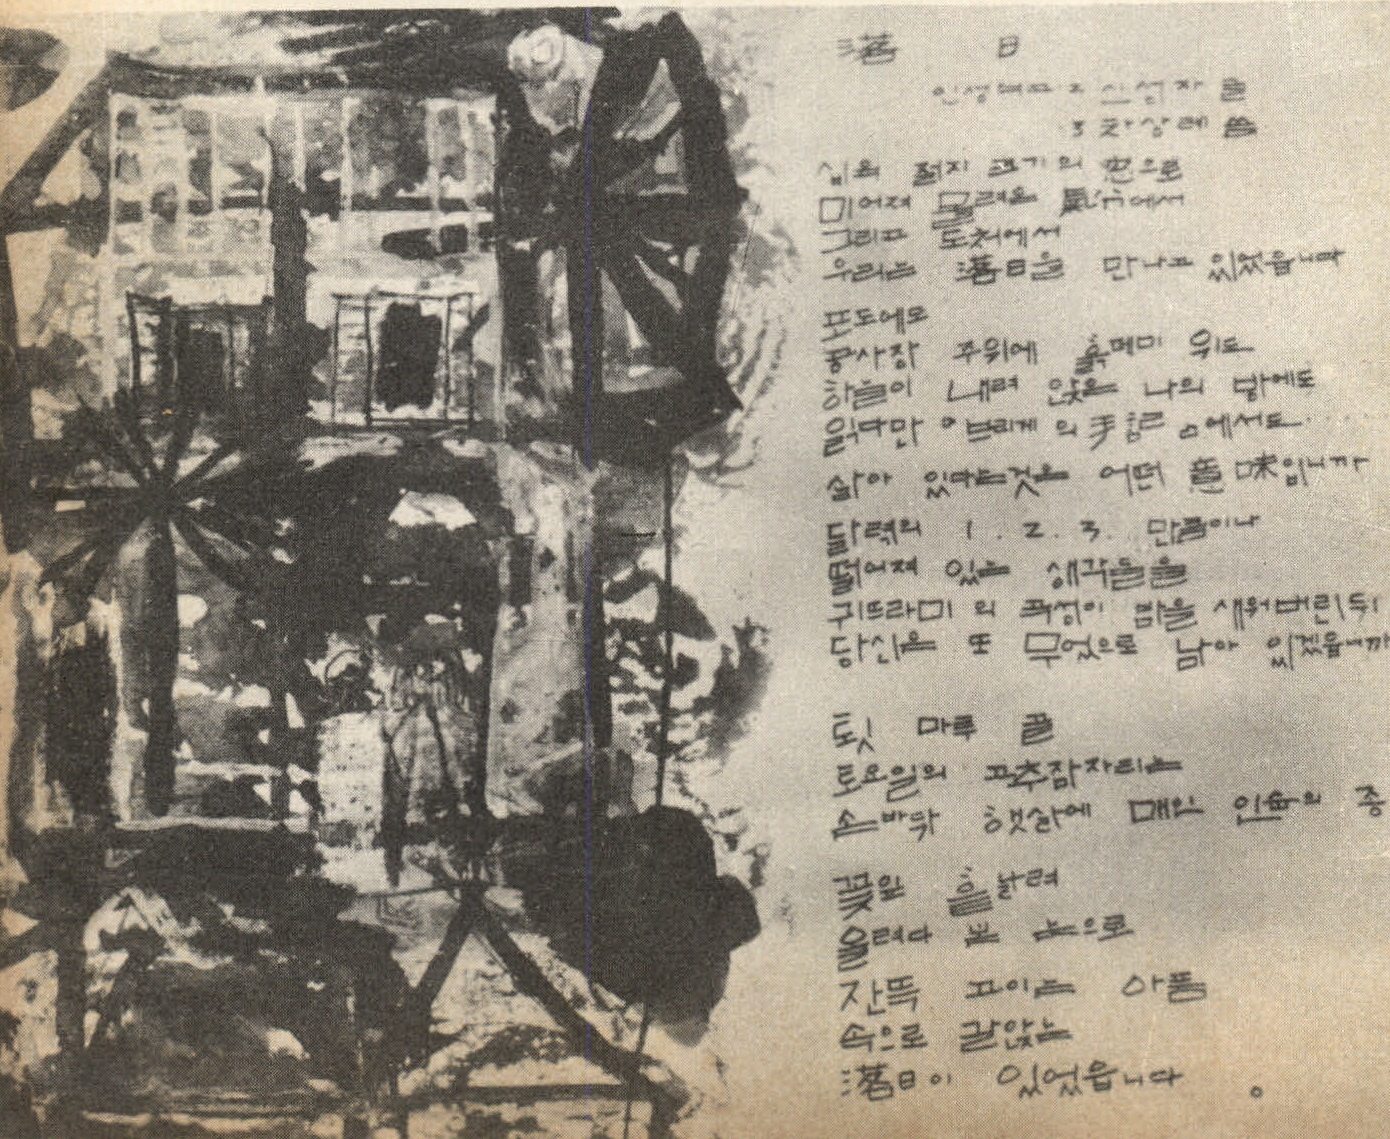 落日
십육 절지 크기의 窓으로
미어져 몰려온 風景에서
그리고 도처에서
우리는 落日을 만나고 있었읍니다
포도에도
공사장 주위에 흙더미 위도
하늘이 내려 앉은 나의 맘에도
읽다만 의 手記 에서도
삶아 있다는것은 어떤 意味입니까
달력의 1. 2. 3. 만큼이나
떨어져 있는 생각들을
귀뜨라미의 곡성이 밤을 새워버린뒤
당신은 또 무엇으로 남아 있겠읍니까
마루 끝
토요일의 고추잠자리는
손바닥 햇살에 매인 의 종
꽃잎 흩날려
올려다 본 눈으로
잔뜩 고이는 아픔
속으로 갈앉는
落日이 있었읍니다.